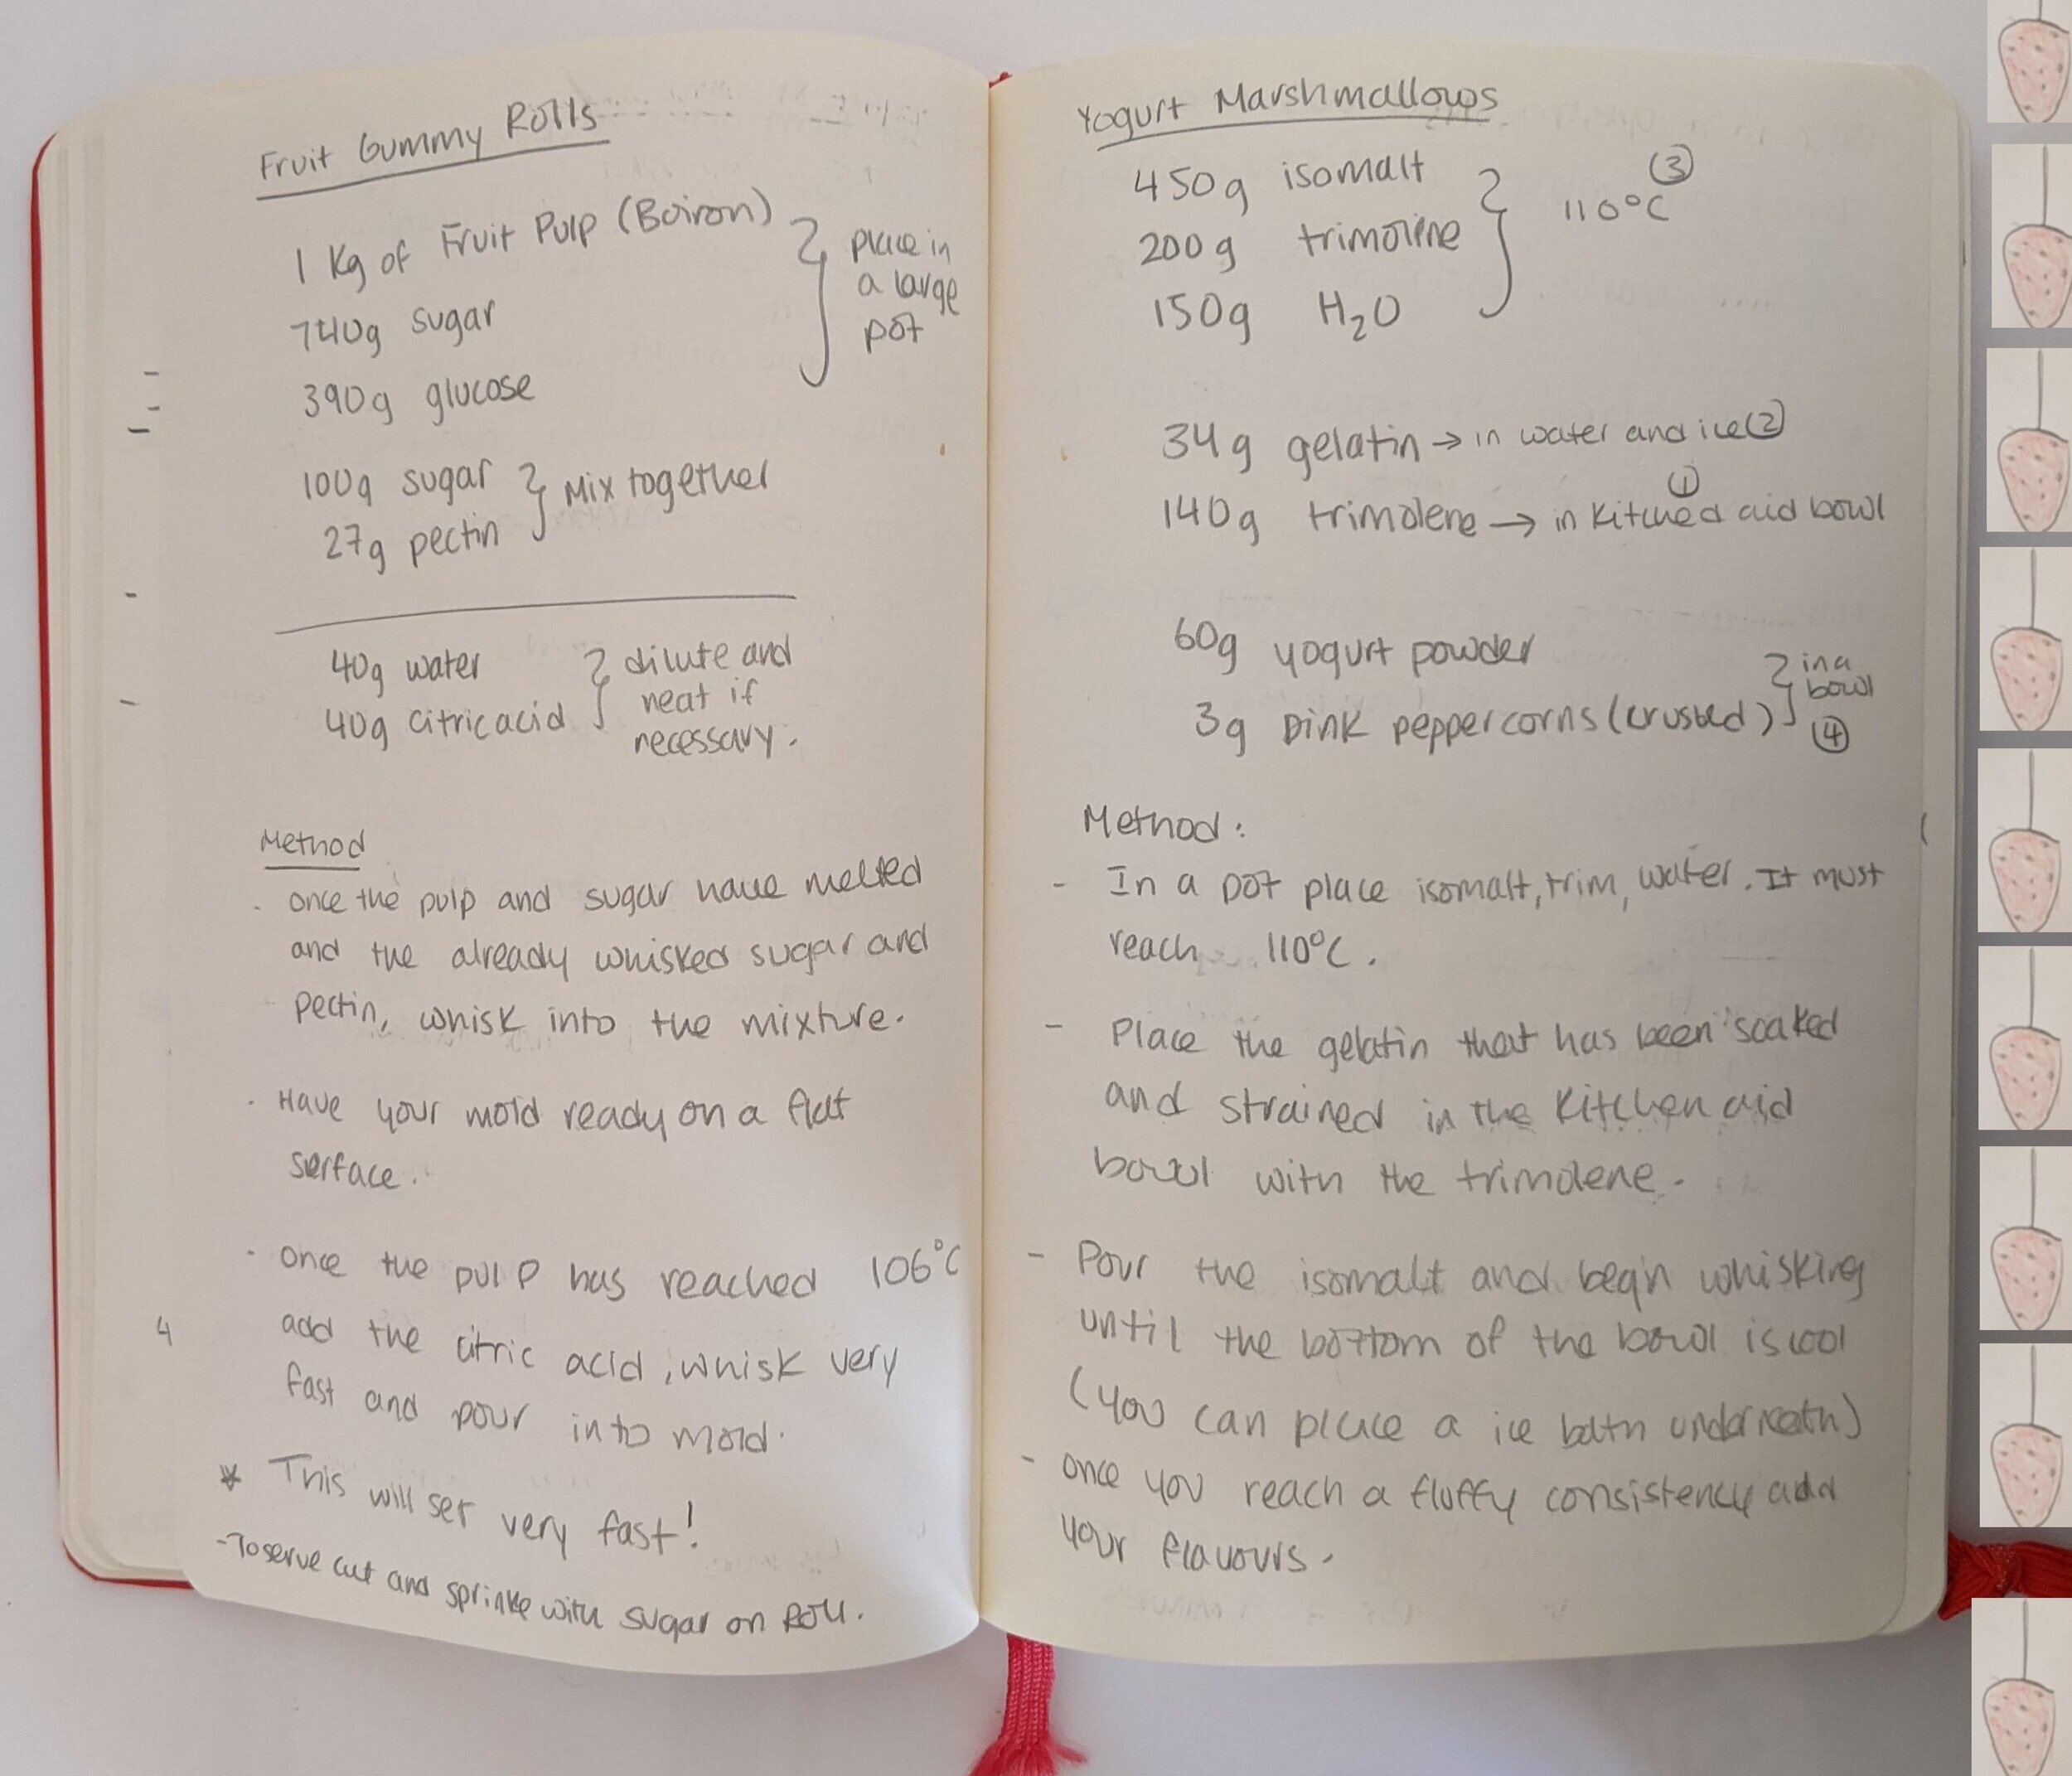 Fruit Gummy Rolls
1 Kg of Fruit Pulp (Boiron)
740g sugar
390g glucose
place in
a large
pot
100g sugar
27g pectin
Mix together
40g water
40g citric acid
dilute and
heat if
necessary.
Method
. once the pulp and sugar have melted
and the already whisked sugar and
pectin, whisk into the mixture.
. Have your mold ready on a flat
surface.
- once the pulp has reached 106°C
add the citric acid, whisk very
fast and pour into mold.
* This will set very fast!
-To serve cut and sprinke with sugar on Roll.
4
Yogurt Marshmallows
450g isomalt
200g trimolene
150g H₂O
110°C ③
34g gelatin → in water and ice ②
①
140g trimolene → in Kitched aid bowl
60g yogurt powder
3g pink peppercorns (crushed)
in a
bowl
④
Method:
- In a pot place isomalt, trim, water. It must
reach 110°C.
- Place the gelatin that has been soaked
and strained in the Kitchen aid
bowl with the trimolene.
- Pour the isomalt and begin whisking
until the bottom of the bowl is cool
(you can place a ice bath underneath)
- once you reach a fluffy consistency add
your flavours.